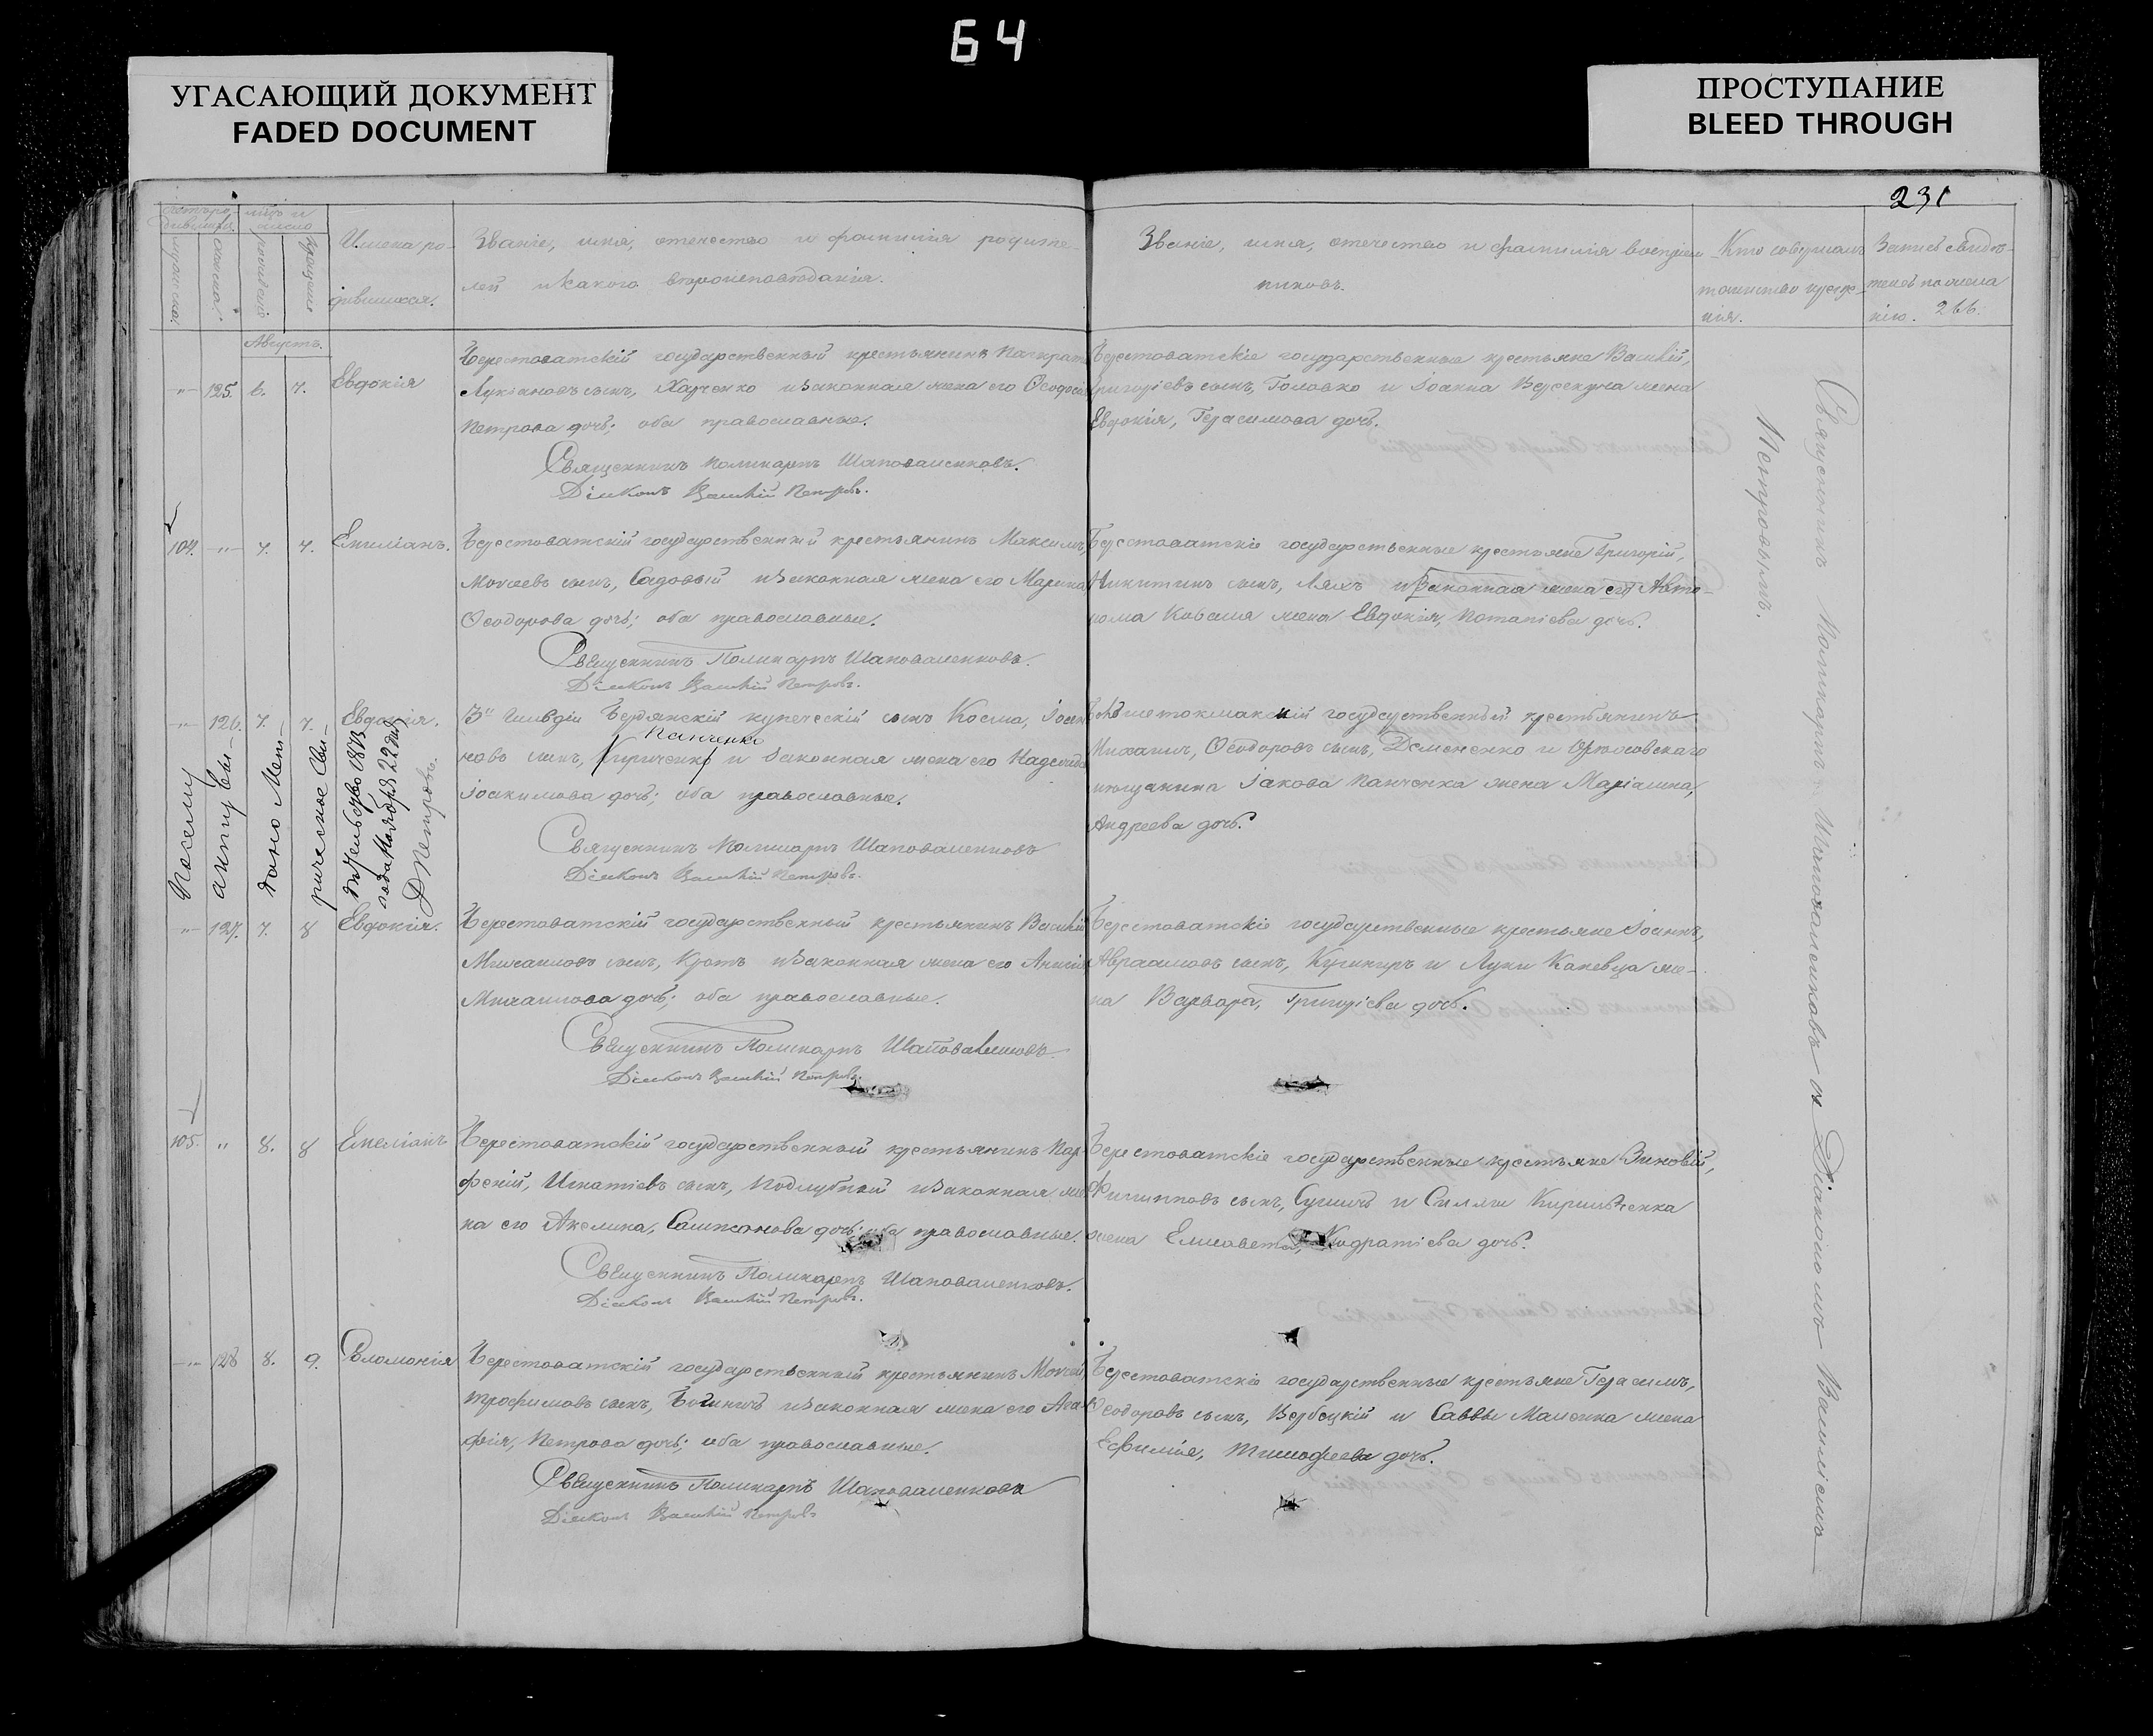 64
УГАСАЮЩИЙ ДОКУМЕНТ
FADED DOCUMENT
ПРОСТУПАНИЕ
BLEED THROUGH
231
Имена ро-
дившихся.
Званіе, имя, отечество и фамилія родите-
лей и какого вѣроисповѣданія.
Званіе, имя, отечество и фамилія воспріем
никовъ.
Кто совершалъ
таинство креще-
нія.
Запись свидѣ-
телей по жела
нію. 266.
Августъ.
125. 6. 7. Евдокія
Берестоватскій государственный крестьянинъ Панкратъ
Лукіановъ сынъ, Харченко и законная жена его Ѳеодосія
Петрова дочь; оба православные.
Священникъ Поликарпъ Шаповаленковъ.
Діаконъ Василій Петровъ.
Берестоватскіе государственные крестьяне Василій,
Григоріевъ сынъ, Головко и Іоанна жена
Евдокія, Герасимова дочь.
104. 7. 7. Емиліанъ.
Берестоватскій государственный крестьянинъ Максимъ,
Моисеевъ сынъ, Садовый и законная жена его Марина,
Ѳеодорова дочь; оба православные.
Священникъ Поликарпъ Шаповаленковъ.
Діаконъ Василій Петровъ.
Берестоватскіе государственные крестьяне Григорій,
Никитинъ сынъ, Ляхъ и законная жена его Авто-
нома жена Евдокія, Потапіева дочь.
126. 7. 7. Евдокія.
3й Гильдіи Бердянскій купеческій сынъ Косма, Іоан
Панченко
новъ сынъ, Кириченко и законная жена его Надежда
Іоакимова дочь; оба православные.
Священникъ Поликарпъ Шаповаленковъ
Діаконъ Василій Петровъ.
Большетокмакскій государственный крестьянинъ
Михаилъ, Ѳеодоровъ сынъ, Демененко и Орѣховскаго
мѣщанина Іакова Панченка жена Маріамна,
Андреева дочь.
По сему
акту вы-
дано Мет-
рическое Сви-
дѣтельство 1873
года Ноября 22 дня
Д Петровъ.
127. 7. 8 Евдокія.
Берестоватскій государственный крестьянинъ Василій
Михаиловъ сынъ, Кротъ и законная жена его Анисія
Михаилова дочь; оба православные.
Священникъ Поликарпъ Шаповаленковъ
Діаконъ Василій Петровъ.
Берестоватскіе государственные крестьяне Іоаннъ,
Авраамовъ сынъ, Кушниръ и Луки Каневца же-
на Варвара, Григоріева дочь.
105. 8. 8 Емеліанъ
Берестоватскій государственный крестьянинъ Пар-
феній, Игнатіевъ сынъ, Поддубный и законная же
на его Акелина, Сампсонова дочь; оба православные.
Священникъ Поликарпъ Шаповаленковъ.
Діаконъ Василій Петровъ.
Берестоватскіе государственные крестьяне Зиновій,
Филипповъ сынъ, и Кириличенка
жена Елисавета, Кодратіева дочь.
128 8. 9. Соломонія
Берестоватскій государственный крестьянинъ Моисей,
Трофимовъ сынъ, и законная жена его Ага
фія, Петрова дочь; оба православные.
Священникъ Поликарпъ Шаповаленковъ
Діаконъ Василій Петровъ
Берестоватскіе государственные крестьяне Герасимъ,
Ѳеодоровъ сынъ, Вербецкій и Саввы жена
Ефимія, Тимофеева дочь.
Священникъ Поликарпъ Шаповаленковъ съ Діакономъ Василіемъ
Петровымъ.